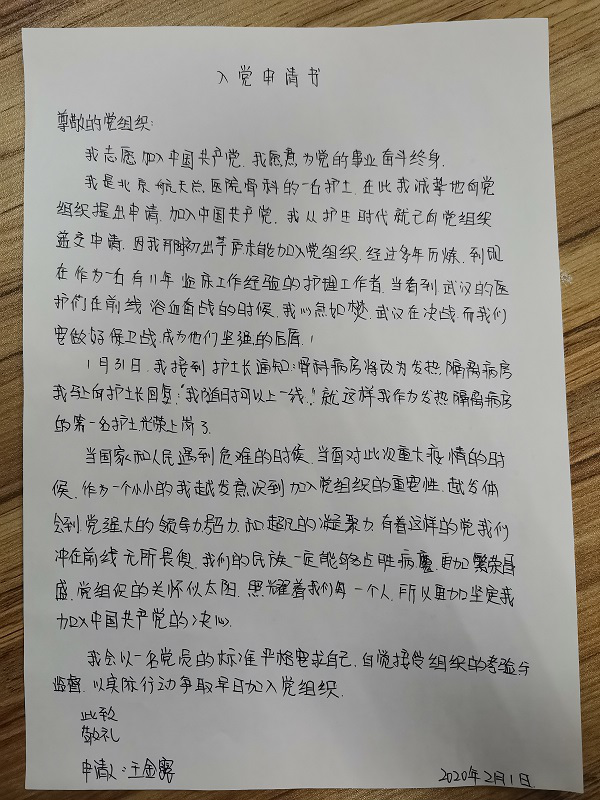 入党申请书
尊敬的党组织:
我志愿加入中国共产党,我愿意为党的事业奋斗终身.
我是北京航天总医院骨科的一名护士,在此我诚挚地向党
组织提出申请,加入中国共产党,我从护生时代就已向党组织
递交申请,因我那时初出茅庐未能加入党组织,经过多年历炼,到现
在作为一名有11年临床工作经验的护理工作者,当看到武汉的医
护们在前线浴血奋战的时候,我心急如焚,武汉在决战,而我们
要做好保卫战,成为他们坚强的后盾!
1月31日,我接到护士长通知:骨科病房将改为发热隔离病房
我马上向护士长回复:"我随时可以上一线."就这样我作为发热隔离病房
的第一名护士光荣上岗了.
当国家和人民遇到危难的时候,当面对此次重大疫情的时
候,作为一个小小的我越发意识到加入党组织的重要性,越发体
会到党强大的领导力号召力和超凡的凝聚力,有着这样的党我们
冲在前线无所畏惧,我们的民族一定能够占胜病魔,更加繁荣昌
盛,党组织的关怀似太阳,照耀着我们每一个人,所以更加坚定我
加入中国共产党的决心.
我会以一名党员的标准严格要求自己,自觉接受组织的考验与
监督,以实际行动争取早日加入党组织.
此致
敬礼
申请人:王金露
2020年2月1日.